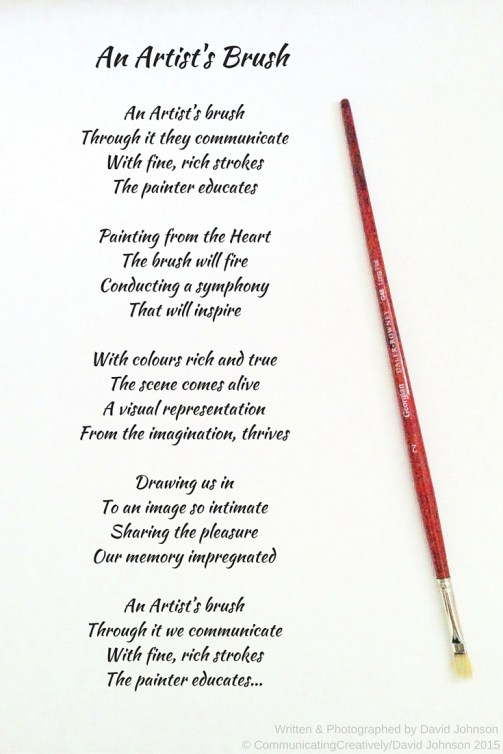 An Artist's Brush
An Artist's brush
Through it they communicate
With fine, rich strokes
The painter educates
Painting from the Heart
The brush will fire
Conducting a symphony
That will inspire
With colours rich and true
The scene comes alive
A visual representation
From the imagination, thrives
Drawing us in
To an image so intimate
Sharing the pleasure
Our memory impregnated
An Artist's brush
Through it we communicate
With fine, rich strokes
The painter educates...
Georgian DALER-ROWNEY G48
2
Written & Photographed by David Johnson
© CommunicatingCreatively/David Johnson 2015